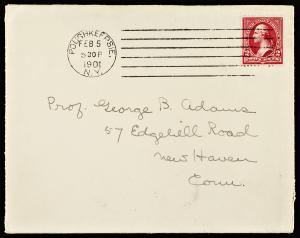 POUGHKEEPSIE.
FEB 5
5 30 P
1901
N.Y.
Prof. George B. Adams
57 Edgehill Road
New Haven
Conn.